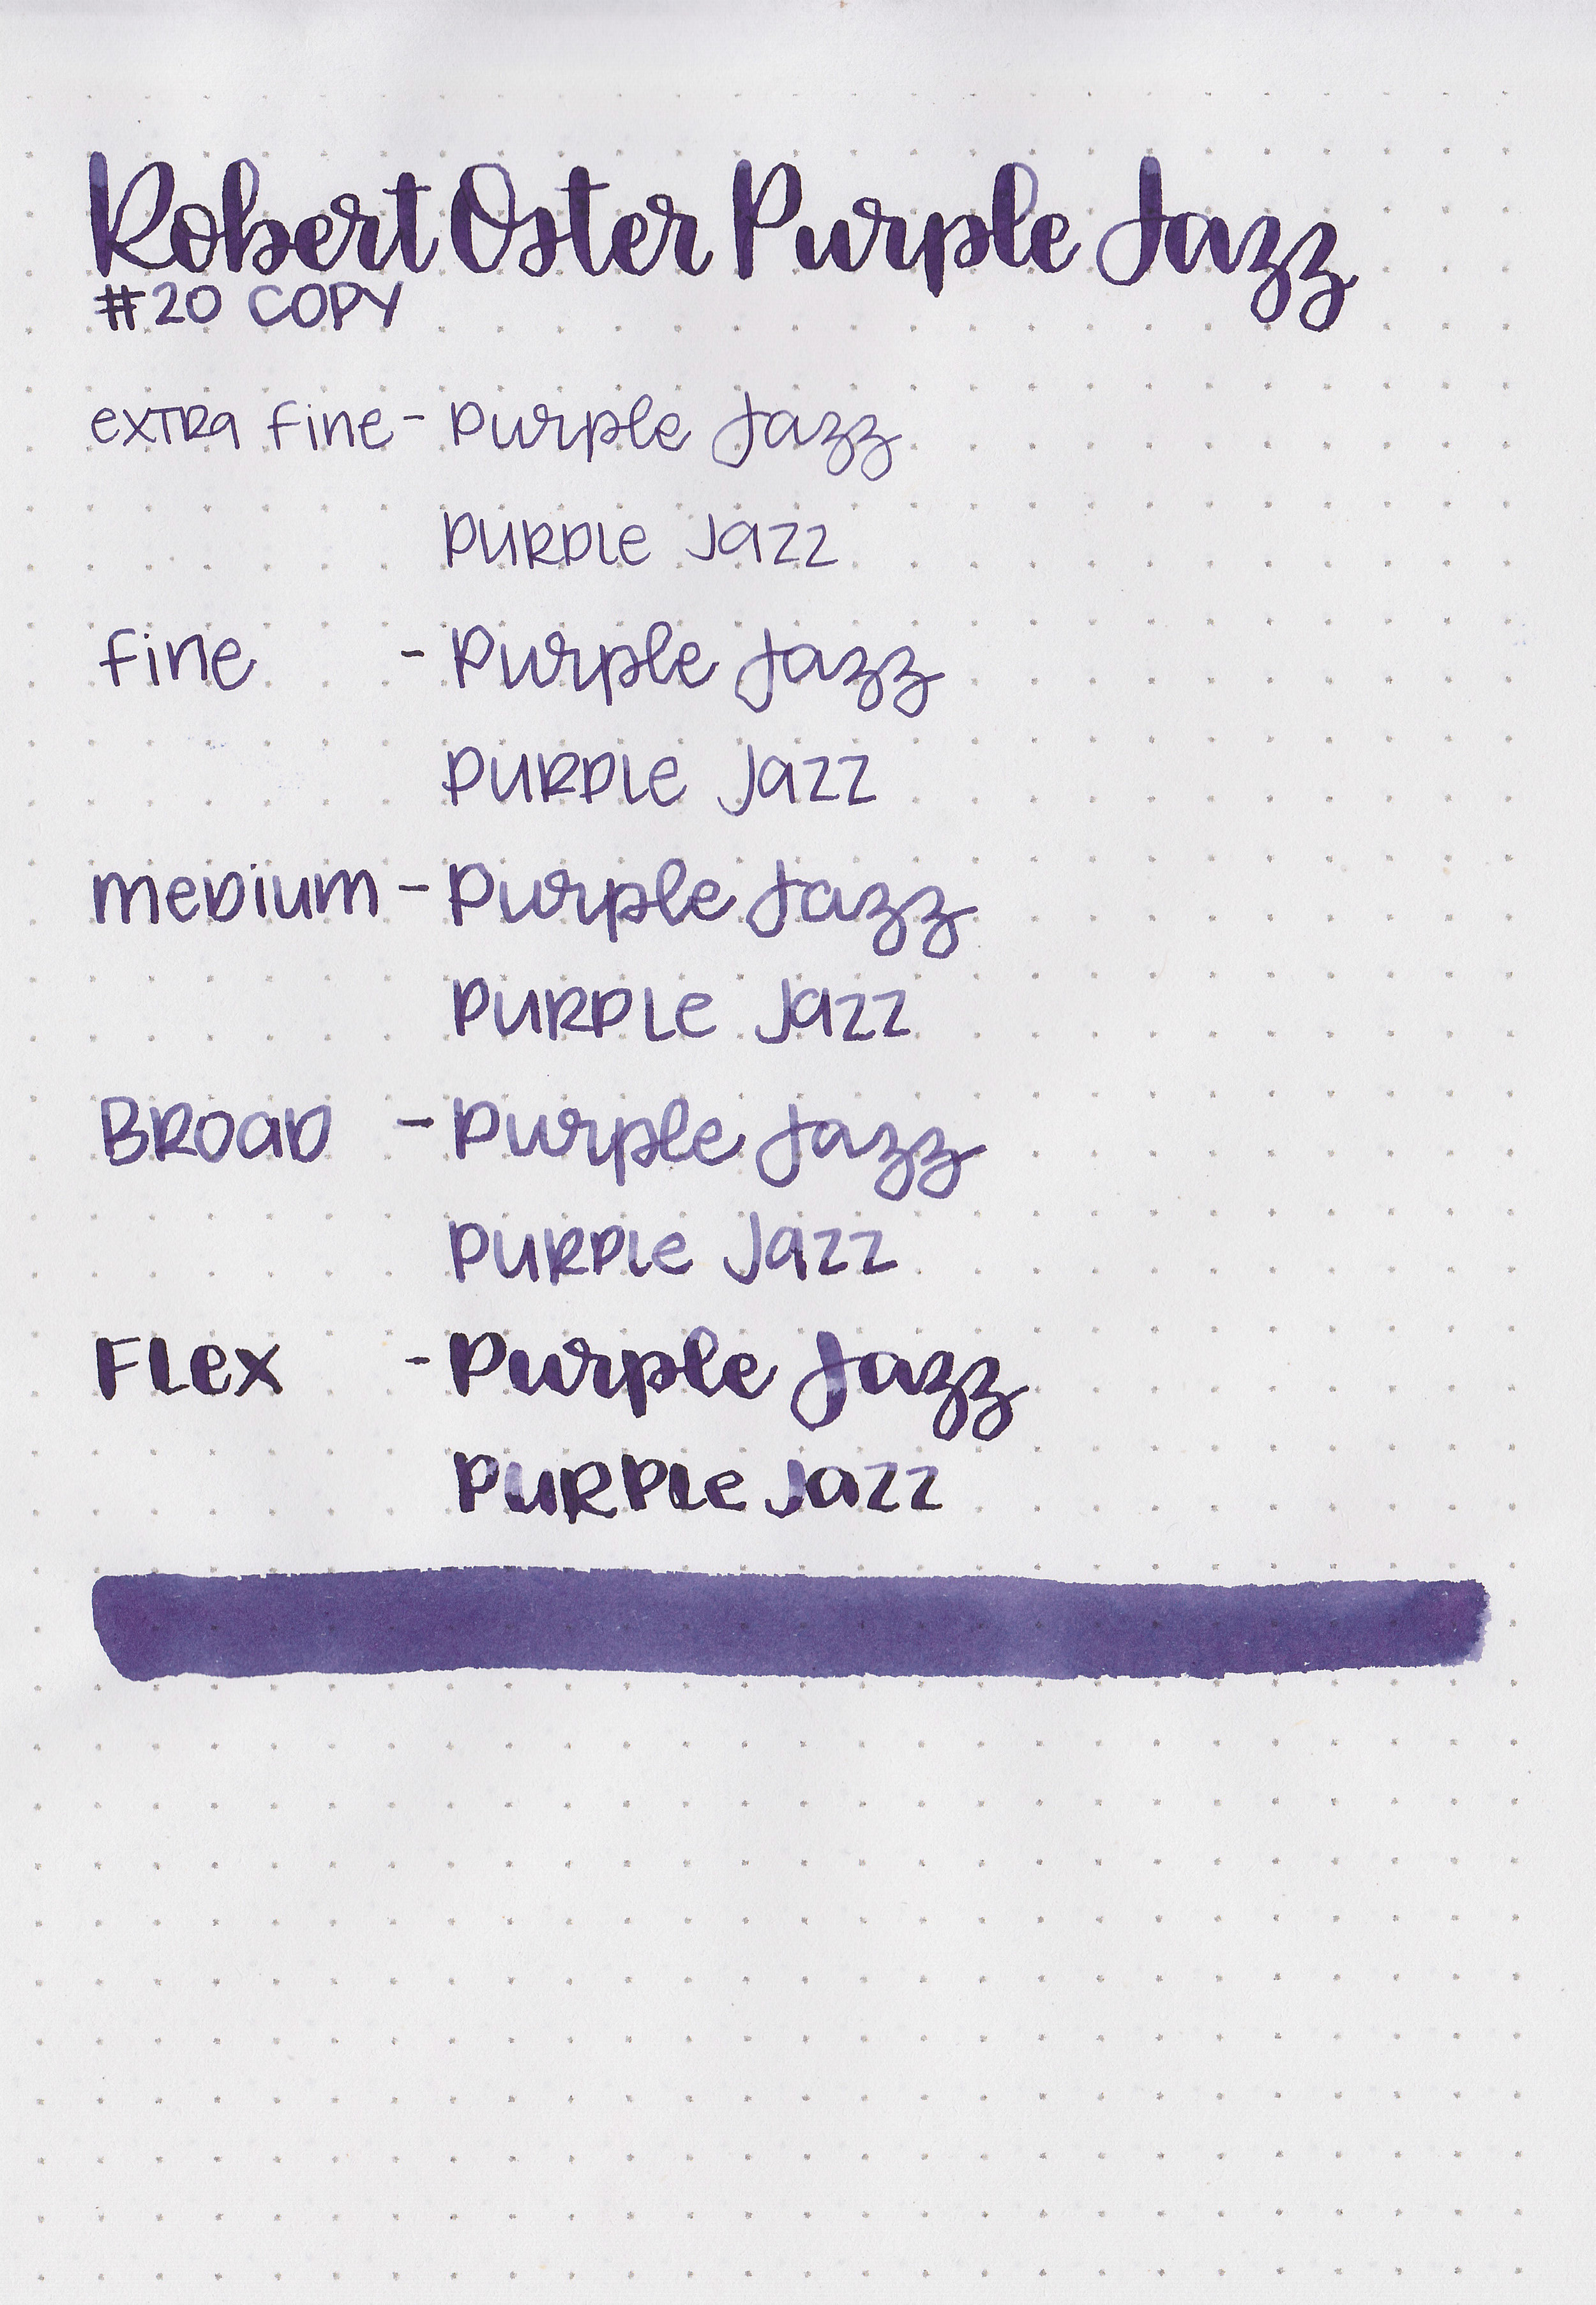 Robert Oster Purple Jazz
#20 COPY
exTRa fine - Purple Jazz
PURPLe Jazz
fine - Purple Jazz
PURPLe Jazz
meDium - Purple Jazz
PURPLe Jazz
BROaD - Purple Jazz
PURPLe Jazz
FLex - Purple Jazz
PURPLe Jazz